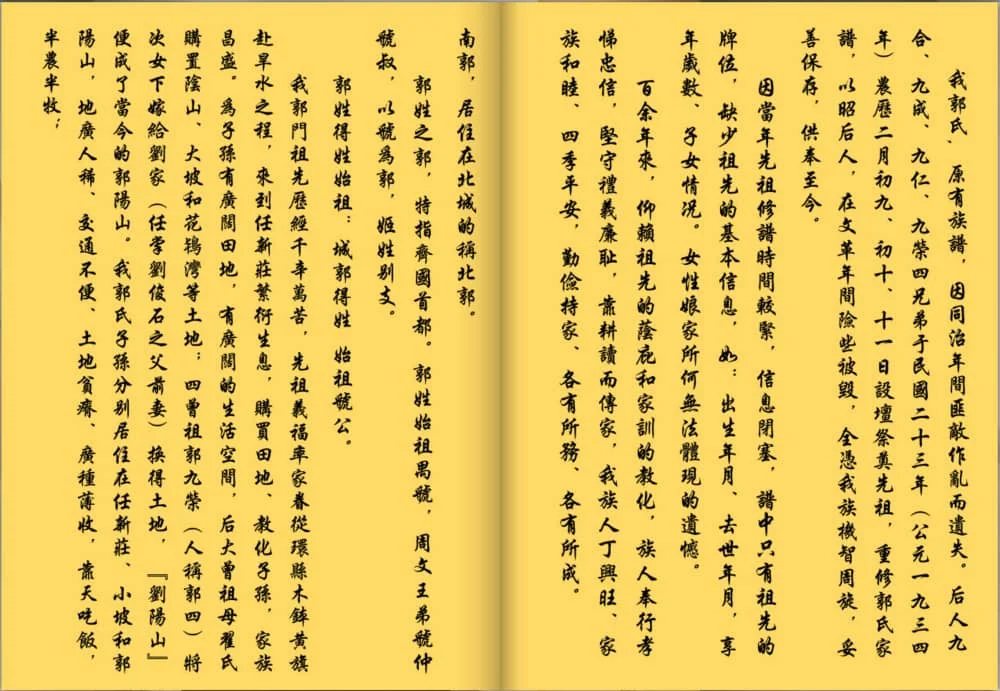 我郭氏、原有族譜，因同治年間匪敵作亂而遺失。后人九
合、九成、九仁、九榮四兄弟于民國二十三年（公元一九三四
年）農歷二月初九、初十、十一日設壇祭奠先祖，重修郭氏家
譜，以昭后人，在文革年間險些被毀，全憑我族機智周旋，妥
善保存，供奉至今。
因當年先祖修譜時間較緊，信息閉塞，譜中只有祖先的
牌位，缺少祖先的基本信息，如：出生年月、去世年月，享
年歲數、子女情况。女性娘家所何無法體現的遺憾。
百余年來，仰賴祖先的蔭庇和家訓的教化，族人奉行孝
悌忠信，堅守禮義廉耻，靠耕讀而傳家，我族人丁興旺、家
族和睦、四季平安，勤儉持家、各有所務、各有所成。
南郭，居住在北城的稱北郭。
郭姓之郭，特指齊國首都。郭姓始祖禺號，周文王弟號仲
號叔，以號爲郭，姬姓别支。
郭姓得姓始祖：城郭得姓 始祖號公。
我郭門祖先歷經千辛萬苦，先祖義福率家眷從環縣木鉢黄旗
赴旱水之程，來到任新莊繁衍生息，購買田地、教化子孫，家族
昌盛。爲子孫有廣闊田地，有廣闊的生活空間，后大曾祖母翟氏
購置陰山、大坡和花鴇灣等土地；四曾祖郭九榮（人稱郭四）將
次女下嫁給劉家（任掌劉俊石之父前妻）换得土地，『劉陽山』
便成了當今的郭陽山。我郭氏子孫分别居住在任新莊、小坡和郭
陽山，地廣人稀、交通不便、土地貧瘠、廣種薄收，靠天吃飯，
半農半牧；